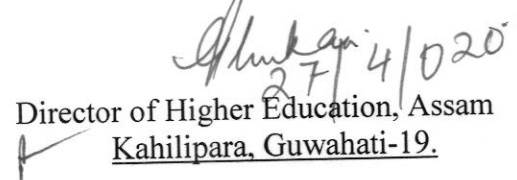 27/4/020
Director of Higher Education, Assam
Kahilipara, Guwahati-19.